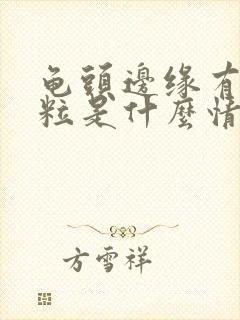 龟頭邊缘有
粒是什麼情
方雪祥